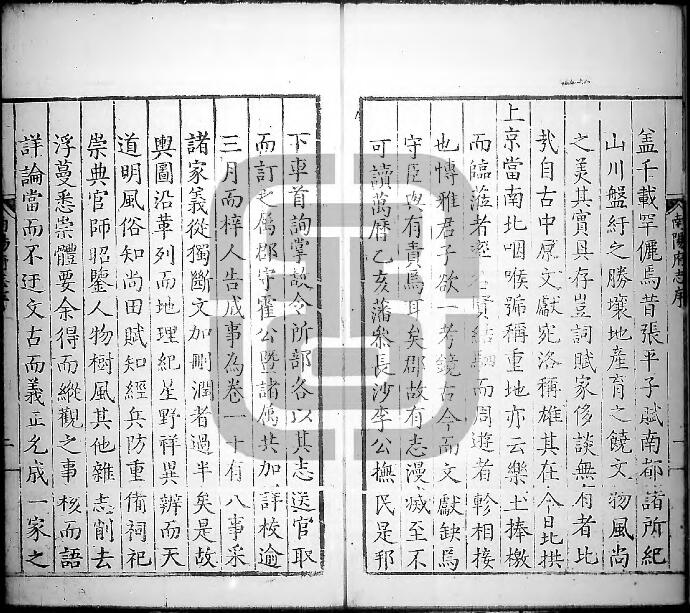 蓋千載罕儷焉昔張平子賦南都諸所紀
山川盤紆之勝壤地產育之饒文物風尚
之美其實具存豈詞賦家侈談無有者比
哉自古中原文獻宛洛稱雄其在今日北拱
上京當南北咽喉號稱重地亦云樂土捧檄
而臨蒞者率名賢結駟而周遊者軫相接
也博雅君子欲一考鏡古今而文獻缺焉
守臣與有責焉耳矣郡故有志漫滅至不
可讀萬曆乙亥藩參長沙李公撫民是邦
下車首詢掌故令所部各以其志送官取
而訂之屬郡守霍公暨諸屬共加詳校逾
三月而梓人告成事為卷一十有八事采
諸家義從獨斷文加刪潤者過半矣是故
輿圖沿革列而地理紀星野祥異辨而天
道明風俗知尚田賦知經兵防重脩祠祀
崇典官師昭鑒人物樹風其他雜志削去
浮蔓悉崇體要余得而縱觀之事核而語
詳論當而不迂文古而義正允成一家之
南陽府志序
二